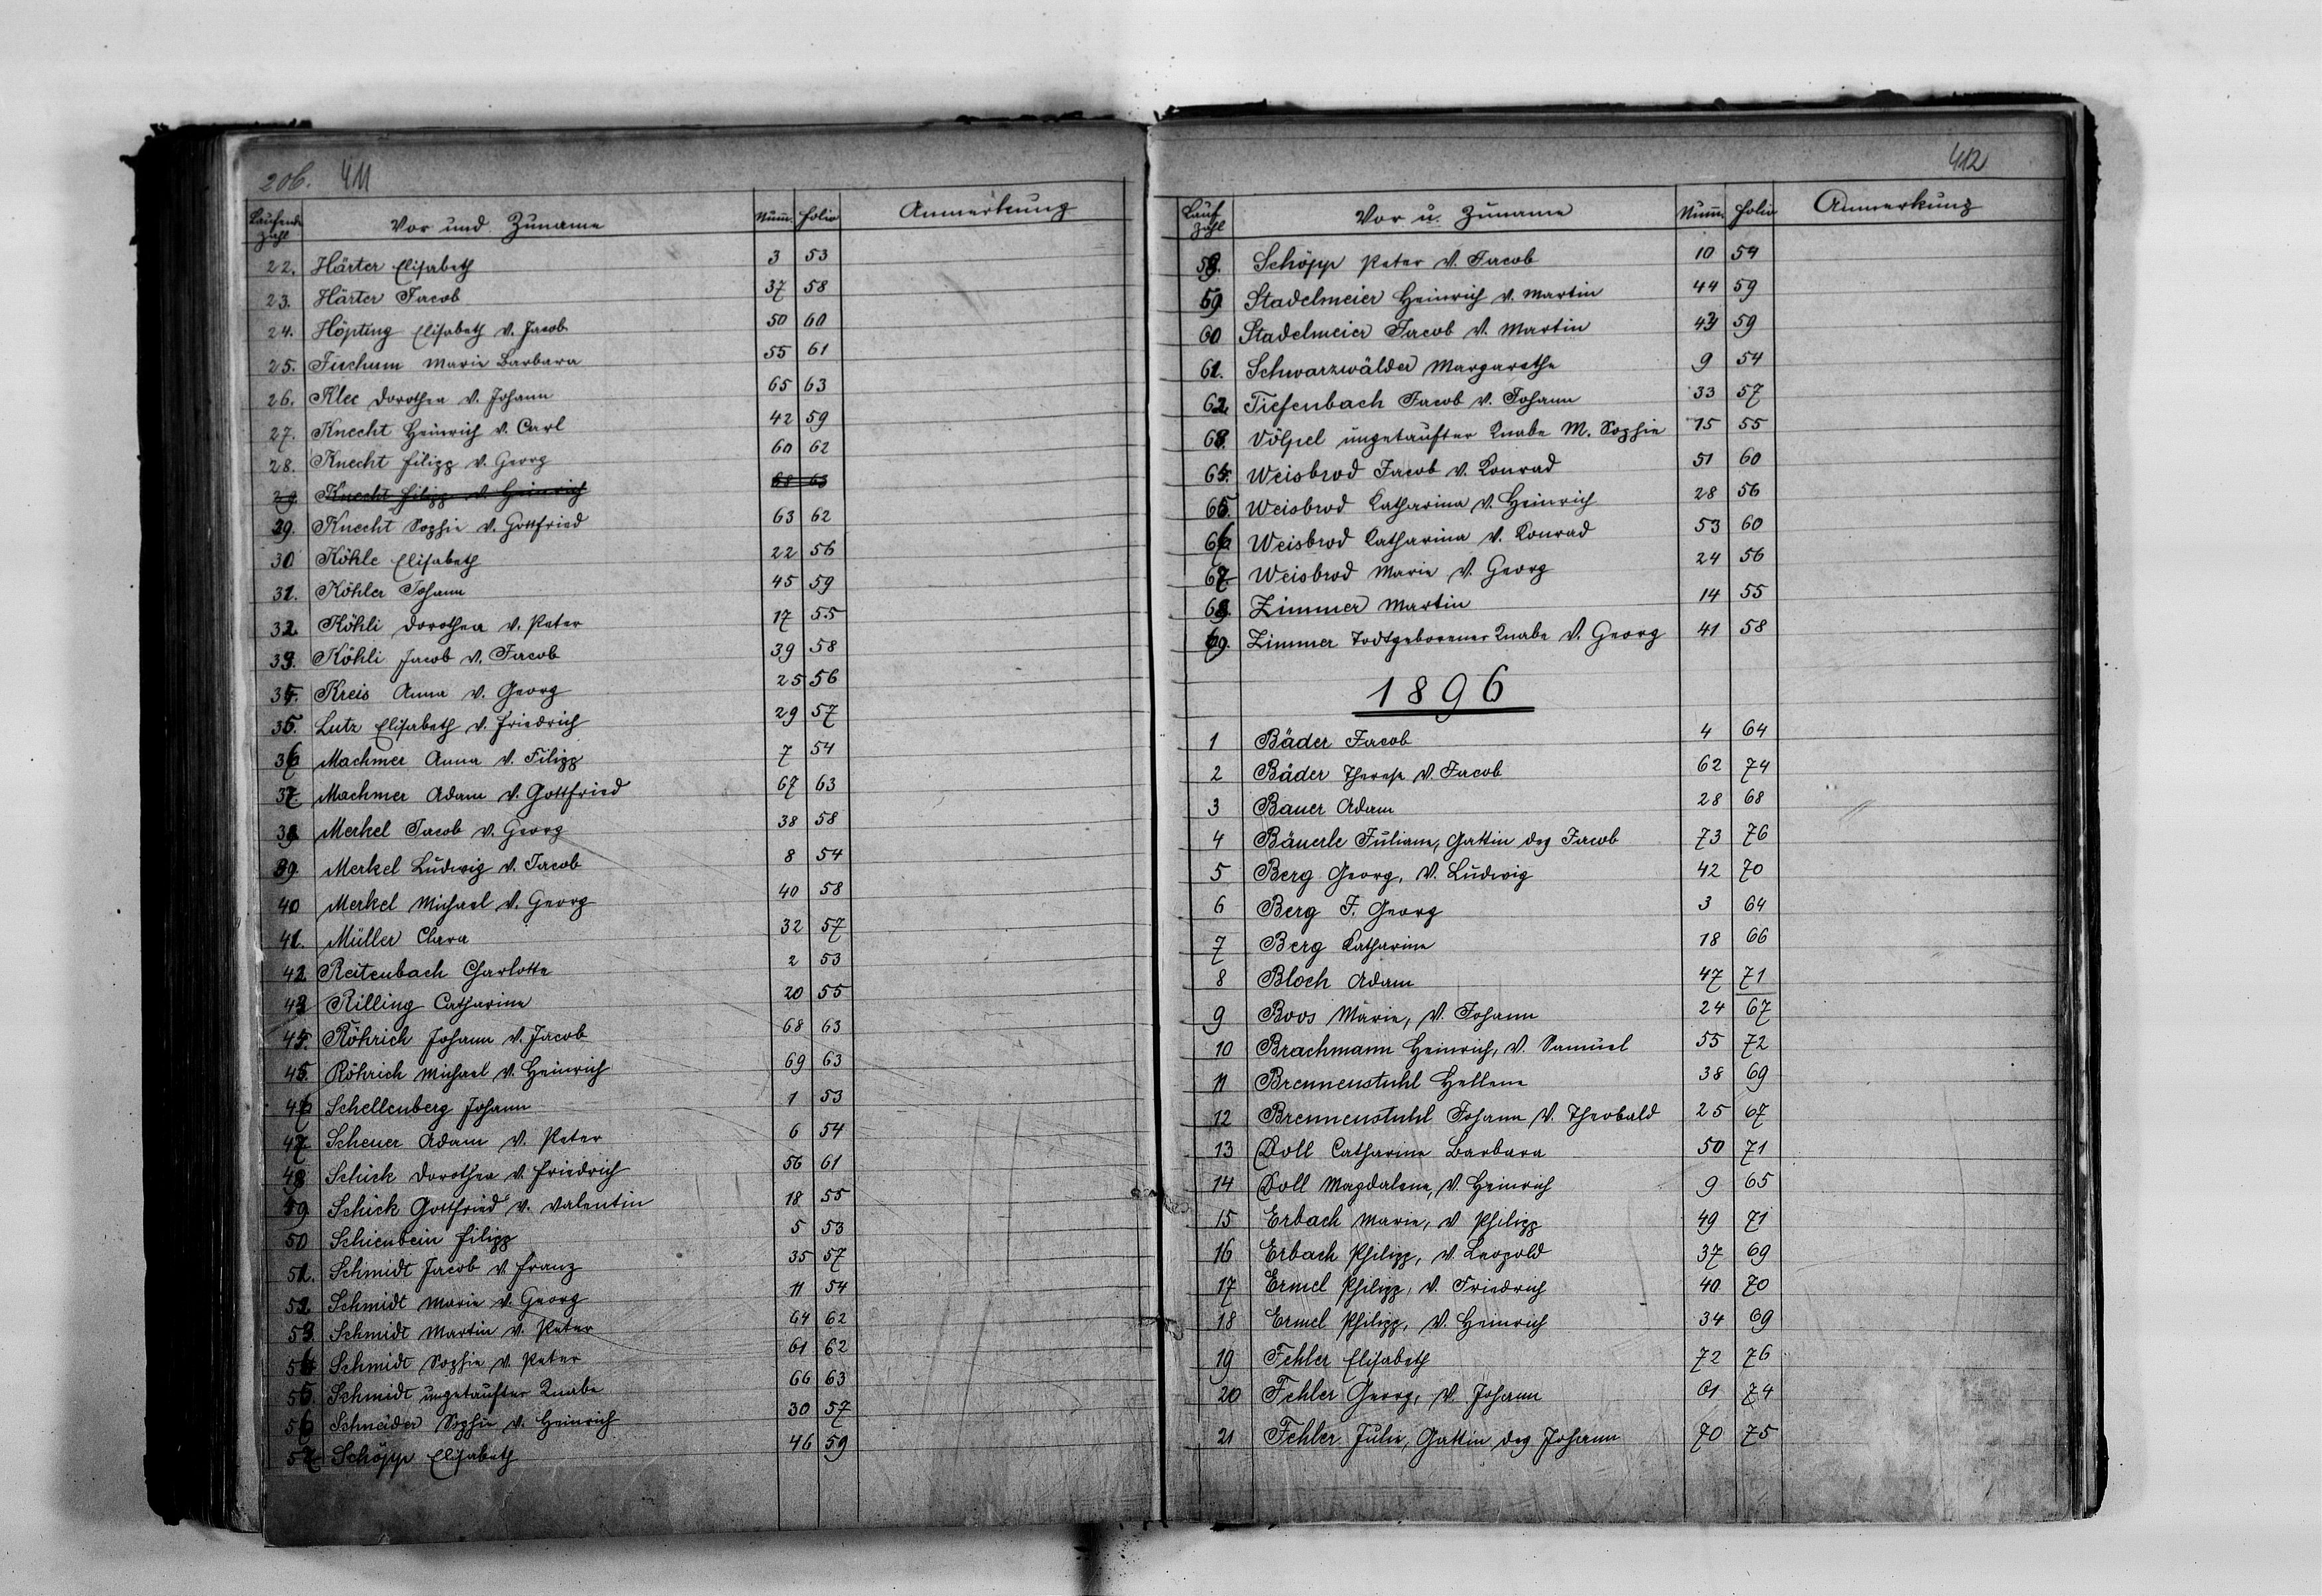 206. 411
Laufende Zahl Vor und Zuname Num. Folio Anmerkung
22. Härter Elisabeth 3 53
23. Härter Jacob 37 58
24. Höpting Elisabeth v. Jacob 50 60
25. Marie Barbara 55 61
26. Klee Dorothea v. Johann 65 63
27. Knecht Heinrich v. Carl 42 59
28. Knecht Filipp v. Georg 60 62
29. Knecht Filipp v. Heinrich 68 63
29. Knecht Sophie v. Gottfried 63 62
30 Köhle Elisabeth 22 56
31. Köhler Johann 45 59
32. Köhli Dorothea v. Peter 17 55
33. Köhli Jacob v. Jacob 39 58
34. Kreis Anna v. Georg 25 56
35. Lutz Elisabeth v. Friedrich 29 57
36 Machmer Anna v. Filipp 7 54
37. Machmer Adam v. Gottfried 67 63
38 Merkel Jacob v. Georg 38 58
39 Merkel Ludwig v. Jacob 8 54
40 Merkel Michael v. Georg 40 58
41. Müller Clara 32 57
42 Reitenbach Charlotte 2 53
43 Rilling Catharine 20 55
44. Röhrich Johann v. Jacob 68 63
45. Röhrich Michael v. Heinrich 69 63
46 Schellenberg Johann 1 53
47 Scheuer Adam v. Peter 6 54
48 Schick Dorothea v. Friedrich 56 61
49 Schick Gottfried v. Valentin 18 55
50 Schienbein Filipp 5 53
51. Schmidt Jacob v. Franz 35 57
52 Schmidt Marie v. Georg 11 54
53. Schmidt Martin v. Peter 64 62
54 Schmidt Sophie v. Peter 61 62
55. Schmidt ungetaufter Knabe 66 63
56 Schneider Sophie v. Heinrich 30 57
57 Schöpp Elisabeth 46 59
412
Lauf Zahl Vor u. Zuname Num. Folio Anmerkung
58. Schöpp Peter v. Jacob 10 54
59. Stadelmeier Heinrich v. Martin 44 59
60 Stadelmeier Jacob v. Martin 43 59
61. Schwarzwälder Margarethe 9 54
62. Tiefenbach Jacob v. Johann 33 57
63. Völpel ungetaufter Knabe M. Sophie 15 55
64. Weisbrod Jacob v. Konrad 51 60
65. Weisbrod Katharina v. Heinrich 28 56
66 Weisbrod Katharina v. Konrad 53 60
67. Weisbrod Marie v. Georg 24 56
68. Zimmer Martin 14 55
69. Zimmer Todtgeborener Knabe v. Georg 41 58
1896
1 Bäder Jacob 4 64
2 Bäder Theresa v. Jacob 62 74
3 Bauer Adam 28 68
4 Bäuerle Juliane, Gattin des Jacob 73 76
5 Berg Georg, v. Ludwig 42 70
6 Berg J. Georg 3 64
7 Berg Katharine 18 66
8 Bloch Adam 47 71
9 Boos Marie, v. Johann 24 67
10 Brachmann Heinrich, v. Samuel 55 72
11 Brennenstuhl Hellene 38 69
12 Brennenstuhl Johann v. Theobald 25 67
13 Doll Catharine Barbara 50 71
14 Doll Magdalene, v. Heinrich 9 65
15 Erbach Marie, v. Philipp 49 71
16 Erbach Philipp, v. Leopold 37 69
17 Ermel Philipp, v. Friedrich 40 70
18 Ermel Philipp, v. Heinrich 34 69
19 Fehler Elisabeth 72 76
20 Fehler Georg, v. Johann 61 74
21 Fehler Julie, Gattin des Johann 70 75